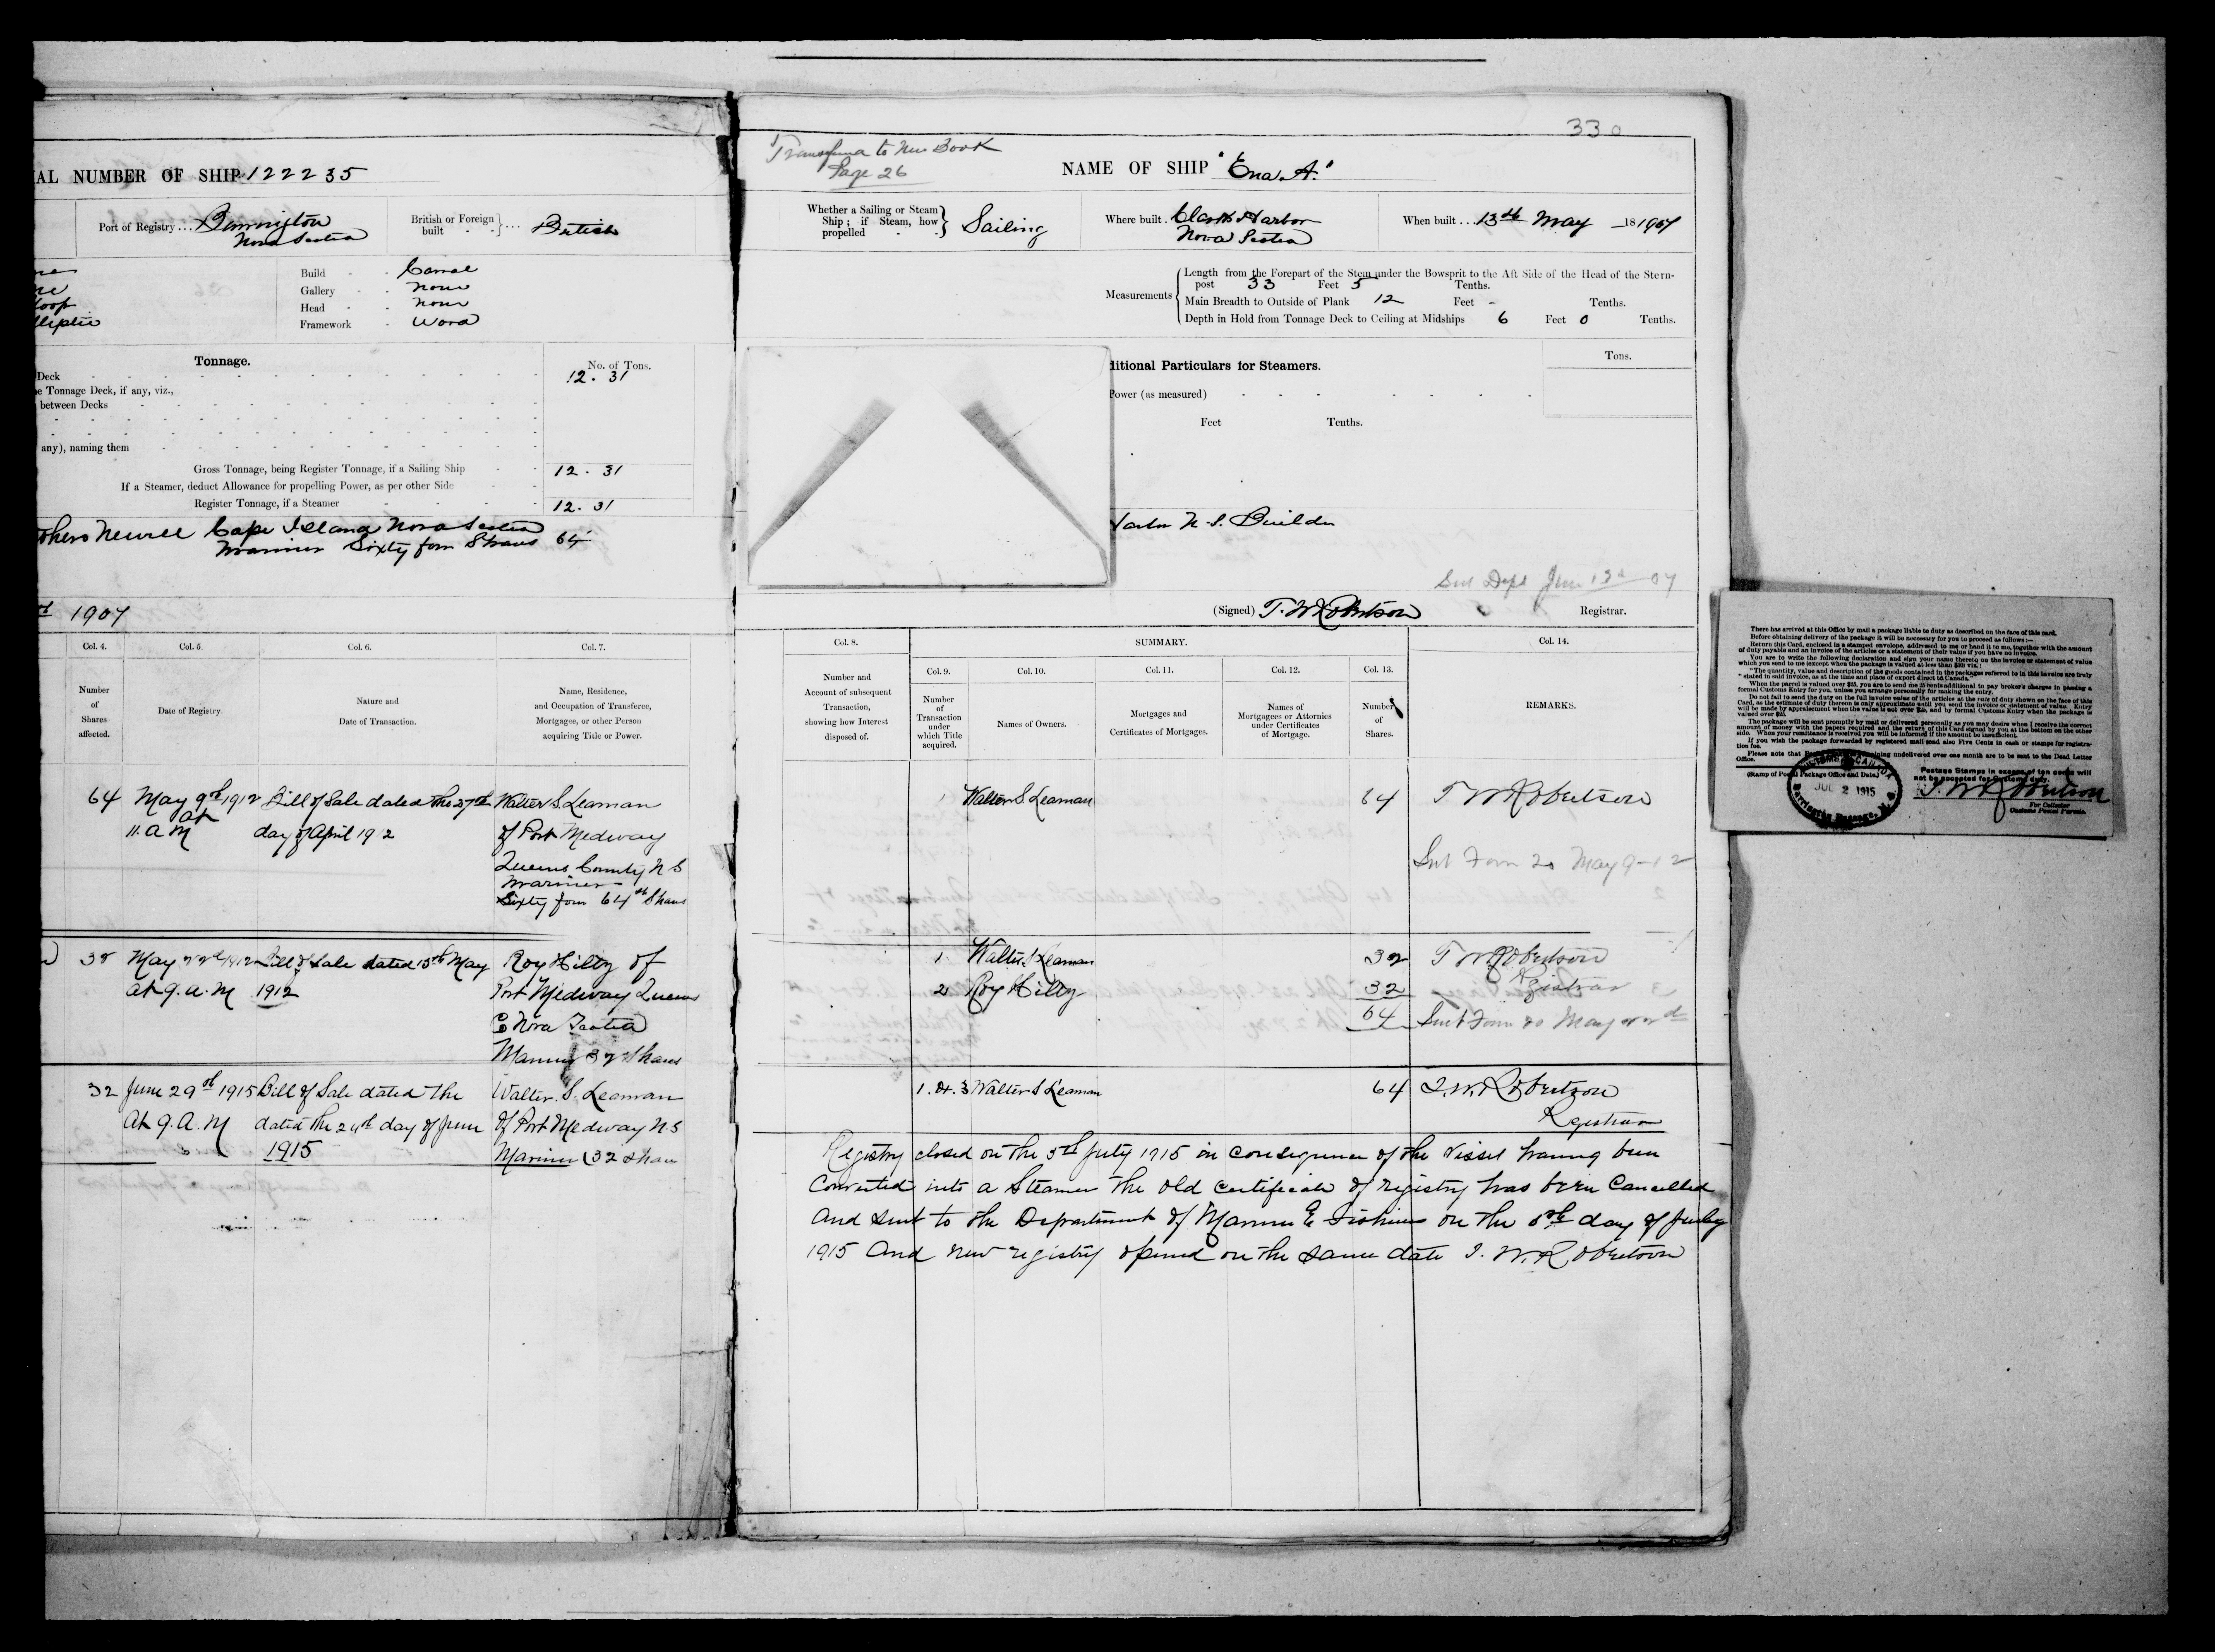 IAL NUMBER OF SHIP 122235
Port of Registry ... Barrington
Nova Scotia
British or Foreign
built } ... British
Build Carvel
Gallery none
Head none
Framework Wood
loop
lliptic
Tonnage.
No. of Tons.
Deck 12. 31
e Tonnage Deck, if any, viz.,
between Decks
any), naming them
Gross Tonnage, being Register Tonnage, if a Sailing Ship 12. 31
If a Steamer, deduct Allowance for propelling Power, as per other Side
Register Tonnage, if a Steamer 12. 31
Newell Cape Island Nova Scotia
Mariner Sixty four Shares 64
1907
Col. 4. Col. 5. Col. 6. Col. 7.
Number
of
Shares
affected.
Date of Registry.
Nature and
Date of Transaction.
Name, Residence,
and Occupation of Transferee,
Mortgagee, or other Person
acquiring Title or Power.
64 May 9th 1912 Bill of Sale dated the 27th Walter S Leaman
at
11. a M day of April 19 2 of Port Medway
Queens County N S
Mariner
Sixty four 64th Shares
May 22nd 1912 Bill of Sale dated 15th May Roy Hilty of
at 9. a. M 1912 Port Medway Queens
Co Nova Scotia
Mariner 32 Shares
32 June 29th 1915 Bill of Sale dated the Walter. S. Leaman
At 9. A. M dated the 24th day of June of Port Medway N.S
1915 Mariner (32 Shares
330
Transferred to New Book
Page 26
NAME OF SHIP "Ena A."
Whether a Sailing or Steam
Ship; if Steam, how
propelled } Sailing
Where built. Clarks Harbor
Nova Scotia
When built ... 13th May 18 1907
Measurements
Length from the Forepart of the Stem under the Bowsprit to the Aft Side of the Head of the Stern-
post 33 Feet 5 Tenths.
Main Breadth to Outside of Plank 12 Feet - Tenths.
Depth in Hold from Tonnage Deck to Ceiling at Midships 6 Feet 0 Tenths.
ditional Particulars for Steamers.
Tons.
Power (as measured)
Feet Tenths.
N. S. Builder
Sent Dept June 13th 07
(Signed) T. W Robertson Registrar.
Col. 8. SUMMARY. Col. 14.
Col. 9. Col. 10. Col. 11. Col. 12. Col. 13.
Number and
Account of subsequent
Transaction,
showing how Interest
disposed of.
Number
of
Transaction
under
which Title
acquired.
Names of Owners.
Mortgages and
Certificates of Mortgages.
Names of
Mortgagees or Attornies
under Certificates
of Mortgage.
Number
of
Shares.
REMARKS.
1 Walter S Leaman 64 T W Robertson
Sent Form 20 May 9-12
1. Walter S Leaman 32 T W Robertson
2 Roy Hilty 32 Registrar
64 Sent Form 20 May 22nd
1. & 3 Walter S Leaman 64 T. W. Robertson
Registrar
Registry closed on the 5th July 1915 in consequence of the Vessel having been
Converted into a Steamer the old certificate of registry has been Cancelled
And sent to the Department of Marine & Fisheries on the 5th day of July
1915 And new registry opened on the same date T. W. Robertson
There has arrived at this Office by mail a package liable to duty as described on the face of this card.
Before obtaining delivery of the package it will be necessary for you to proceed as follows:—
Return this Card, enclosed in a stamped envelope, addressed to me or hand it to me, together with the amount
of duty payable and an invoice of the articles or a statement of their value if you have no invoice.
You are to write the following declaration and sign your name thereto on the invoice or statement of value
(Stamp of Postal Package Office and Date.)
Postage Stamps in excess of ten cents will
not be accepted for Customs duty.
CUSTOMS CANADA
JUL 2 1915
Barrington Passage, N. S.
T. W Robertson
For Collector
Customs Postal Parcels.